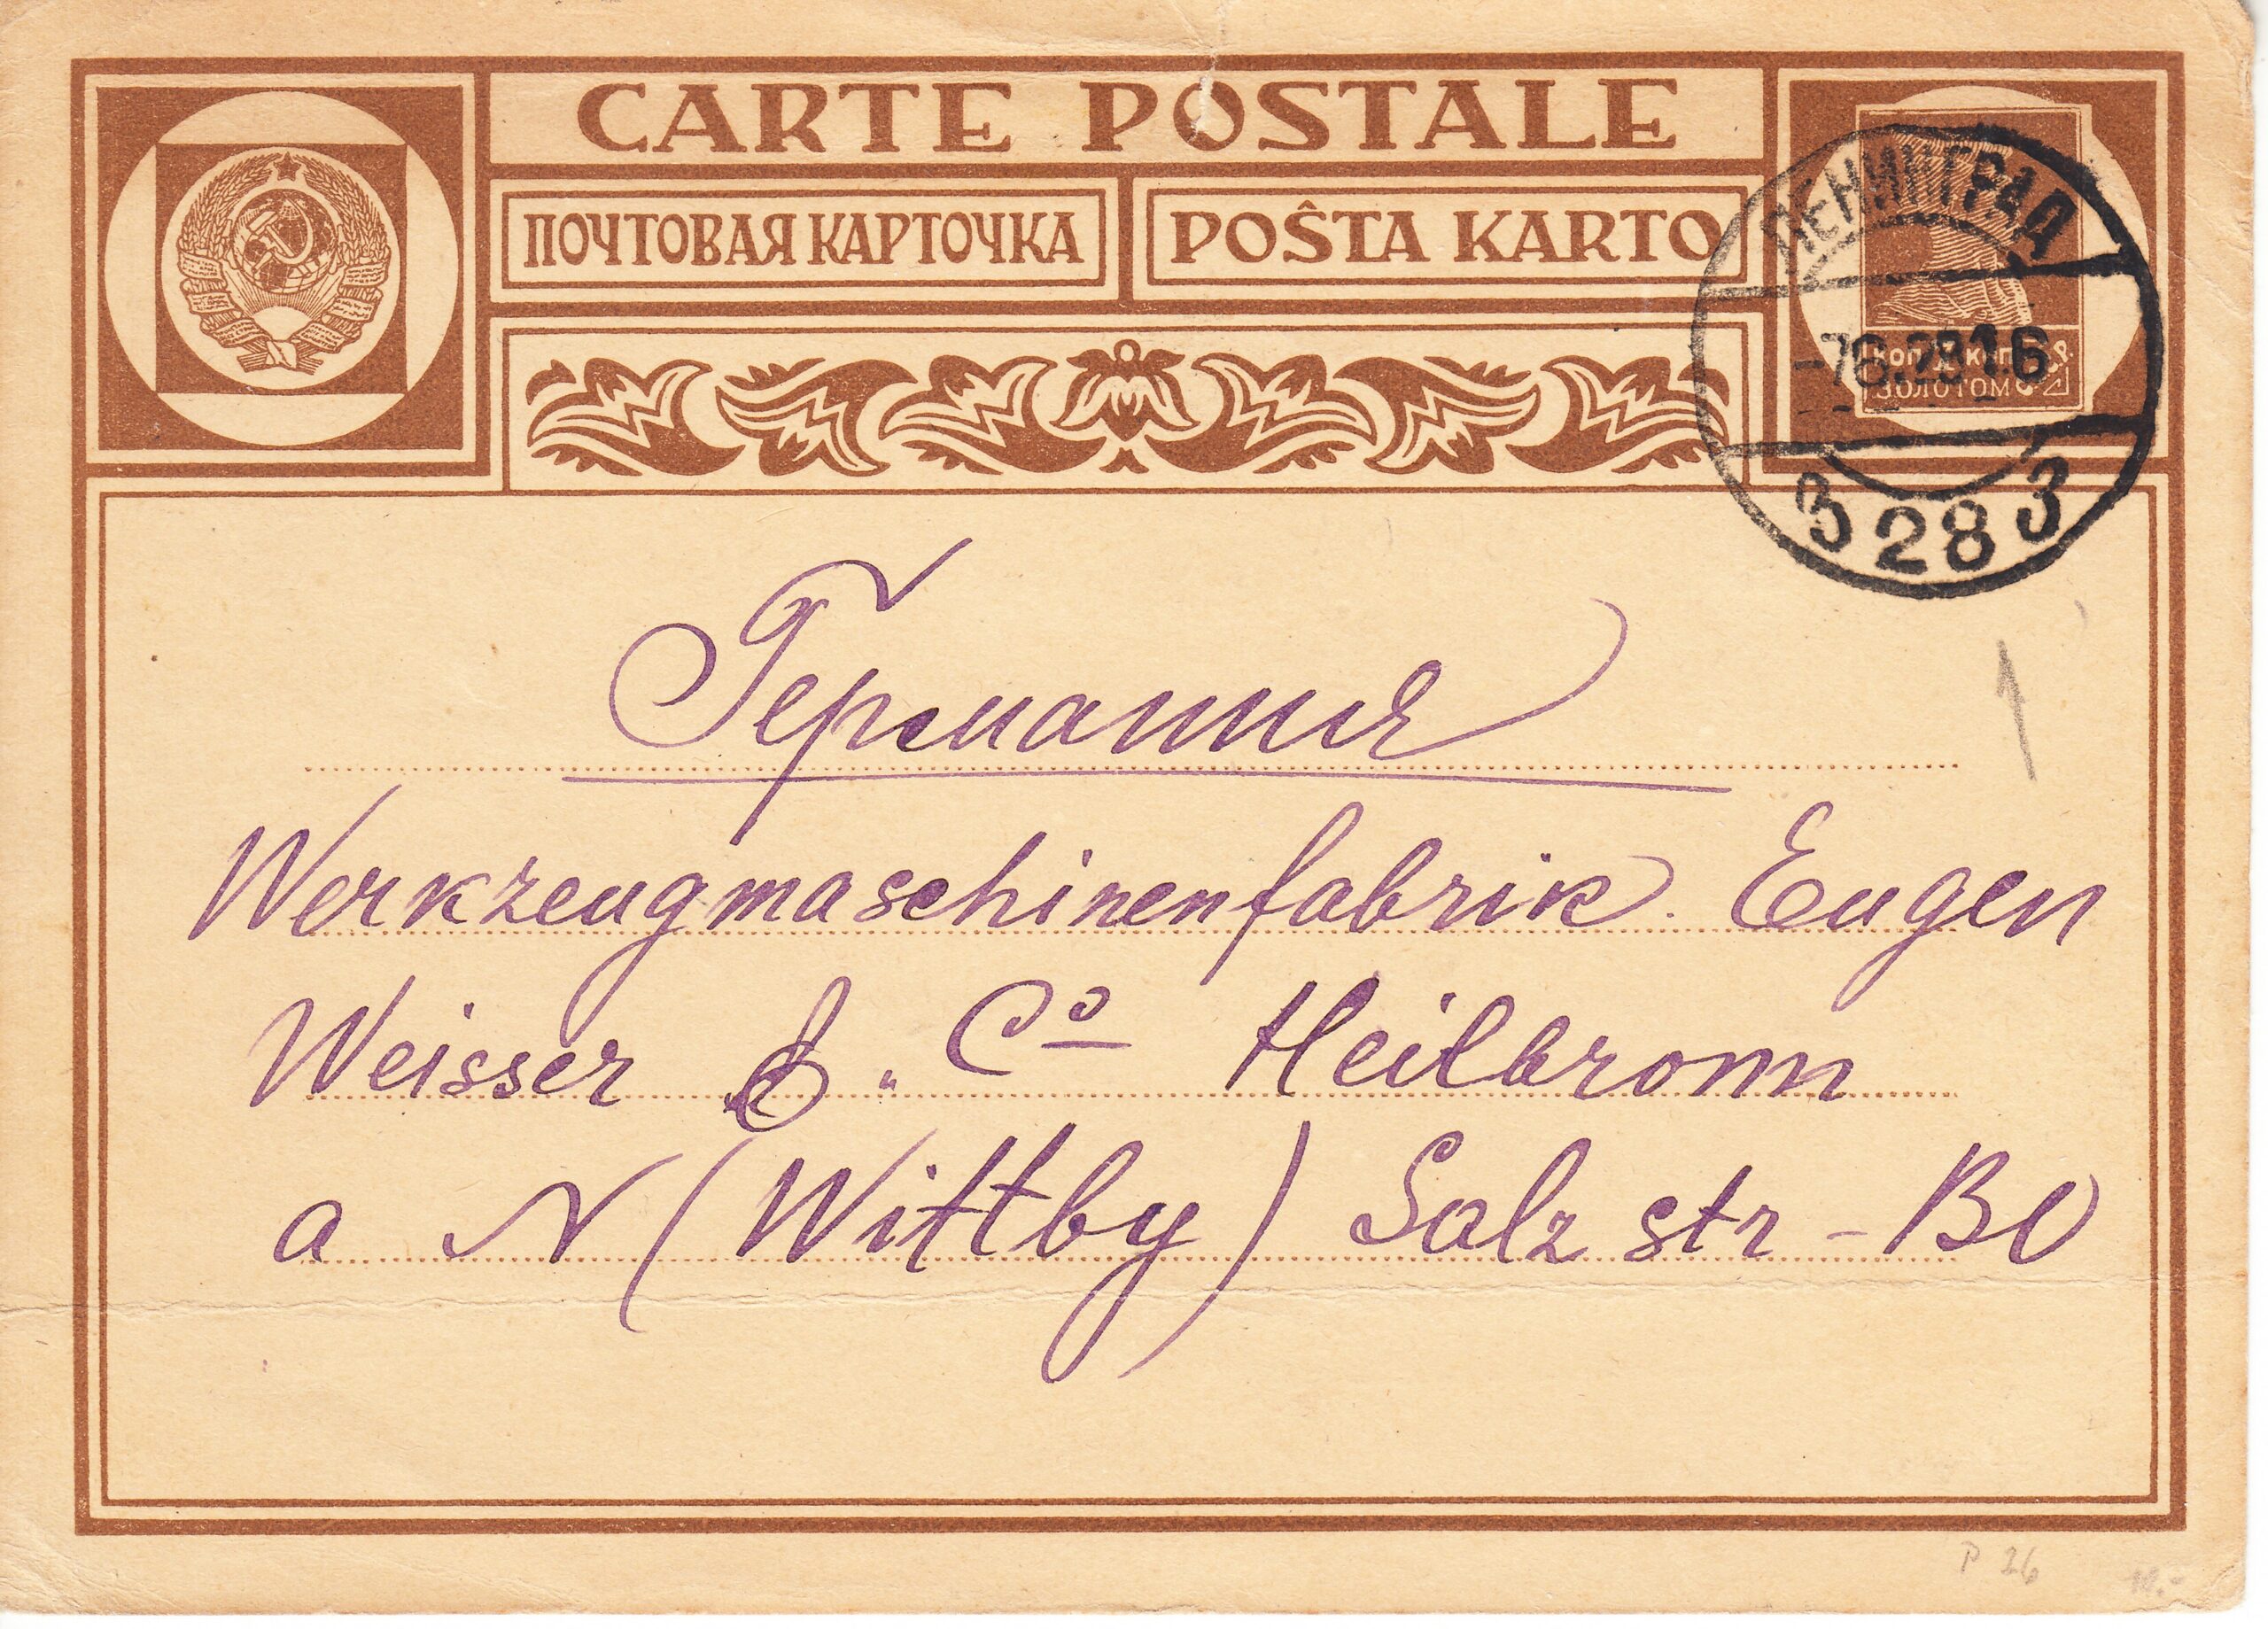 CARTE POSTALE
ПОЧТОВАЯ КАРТОЧКА
POŜTA KARTO
ЛЕНИНГРАД
-7.6.28.16
3 28 3
КОП.
ЗОЛОТОМ
Германия
1
Werkzeugmaschinenfabrik. Eugen
Weisser & Co Heilbronn
a N (Wittby) Salzstr - 
P 26
10.-